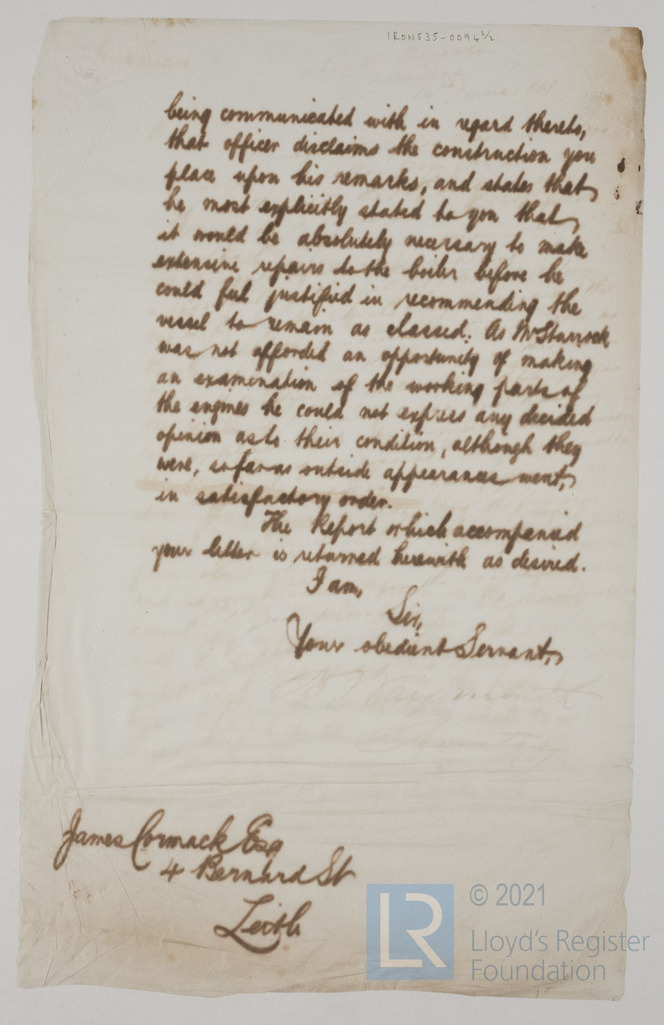 IRON535-0094½
being communicated with in regard thereto,
that officer disclaims the construction you
place upon his remarks, and states that
he most explicitly stated to you that
it would be absolutely necessary to make
extensive repairs to the boiler before he
could feel justified in recommending the
vessel to remain as classed. As Mr Sturrock
was not afforded an opportunity of making
an examination of the working parts of
the engines he could not express any decided
opinion as to their condition, although they
were, so far as outside appearances went,
in satisfactory order.
The Report which accompanied
your letter is returned herewith as desired.
I am,
Sir,
Your obedient Servant,
Secretary
James Cormack Esq
4 Bernard St
Leith
LR
© 2021
Lloyd's Register
Foundation